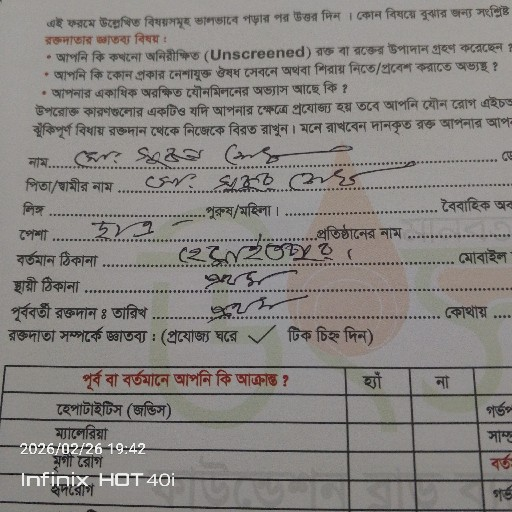 এই ফরমে উল্লেখিত বিষয়সমূহ ভালভাবে পড়ার পর উত্তর দিন । কোন বিষয়ে বুঝার জন্য সংশ্লি
রক্তদাতার জ্ঞাতব্য বিষয় :
• আপনি কি কখনো অনিরীক্ষিত (Unscreened) রক্ত বা রক্তের উপাদান গ্রহণ করেছেন ?
• আপনি কি কোন প্রকার নেশাযুক্ত ঔষধ সেবনে অথবা শিরায় নিতে/প্রবেশ করাতে অভ্যস্থ ?
• আপনার একাধিক অরক্ষিত যৌনমিলনের অভ্যাস আছে কি ?
উপরোক্ত কারণগুলোর একটিও যদি আপনার ক্ষেত্রে প্রযোজ্য হয় তবে আপনি যৌন রোগ এইচঅ
ঝুঁকিপূর্ণ বিধায় রক্তদান থেকে নিজেকে বিরত রাখুন । মনে রাখবেন দানকৃত রক্ত আপনার আপ
নাম মো:
পিতা/স্বামীর নাম মো:
লিঙ্গ পুরুষ/মহিলা । বৈবাহিক অব
পেশা প্রতিষ্ঠানের নাম
বর্তমান ঠিকানা মোবাইল
স্থায়ী ঠিকানা
পূর্ববর্তী রক্তদান ঃ তারিখ কোথায়
রক্তদাতা সম্পর্কে জ্ঞাতব্য : (প্রযোজ্য ঘরে ✓ টিক চিহ্ন দিন)
পূর্ব বা বর্তমানে আপনি কি আক্রান্ত ? হ্যাঁ না
হেপাটাইটিস (জন্ডিস) গর্ভপ
ম্যালেরিয়া
মৃগী রোগ
হৃদরোগ
2026/02/26 19:42
Infinix HOT 40i
ফাউন্ডেশন ব্লাড ব্যা